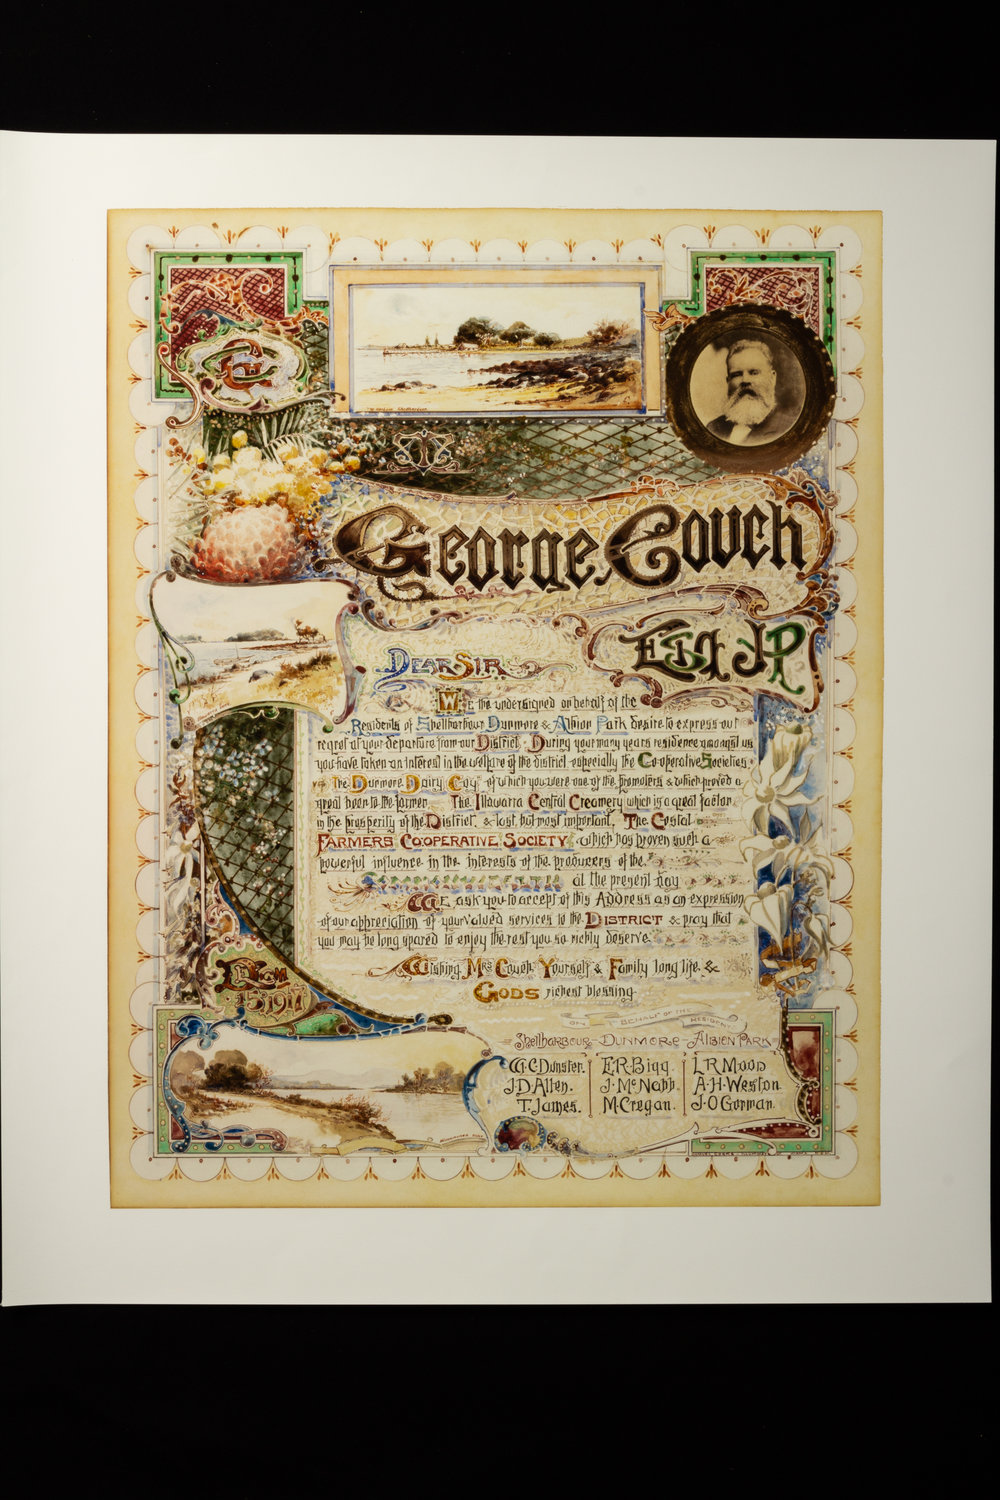 George Couch
Esq JP
Dear Sir
We the undersigned on behalf of the
Residents of Shellharbour Dunmore & Albion Park desire to express our
regret at your departure from our District. During your many years residence amongst us
you have taken an interest in the welfare of the district especially the Co-operative Societies
The Dunmore Dairy Coy of which you were one of the promoters & which proved a
great boon to the farmer The Illawarra Central Creamery which is a great factor
in the prosperity of the District, & last, but most important, The Costal
Farmers Co.operative Society which has proven such a
powerful influence in the interests of the producers of the
Commonwealth at the present day
We ask you to accept of this Address as an expression
of our appreciation of your valued services to the District & pray that
you may be long spared to enjoy the rest you so richly deserve.
Wishing Mrs Couch, Yourself & Family long life &
Gods richest blessing
Dec 15 1917
On behalf of the Resident
Shellharbour - Dunmore - Albion Park
W.C. Dunster. E.R. Bigg. L R Mood
J.D. Allen. J. McNabb. A.H. Weston
T. James. M Cregan. J.O Gorman.